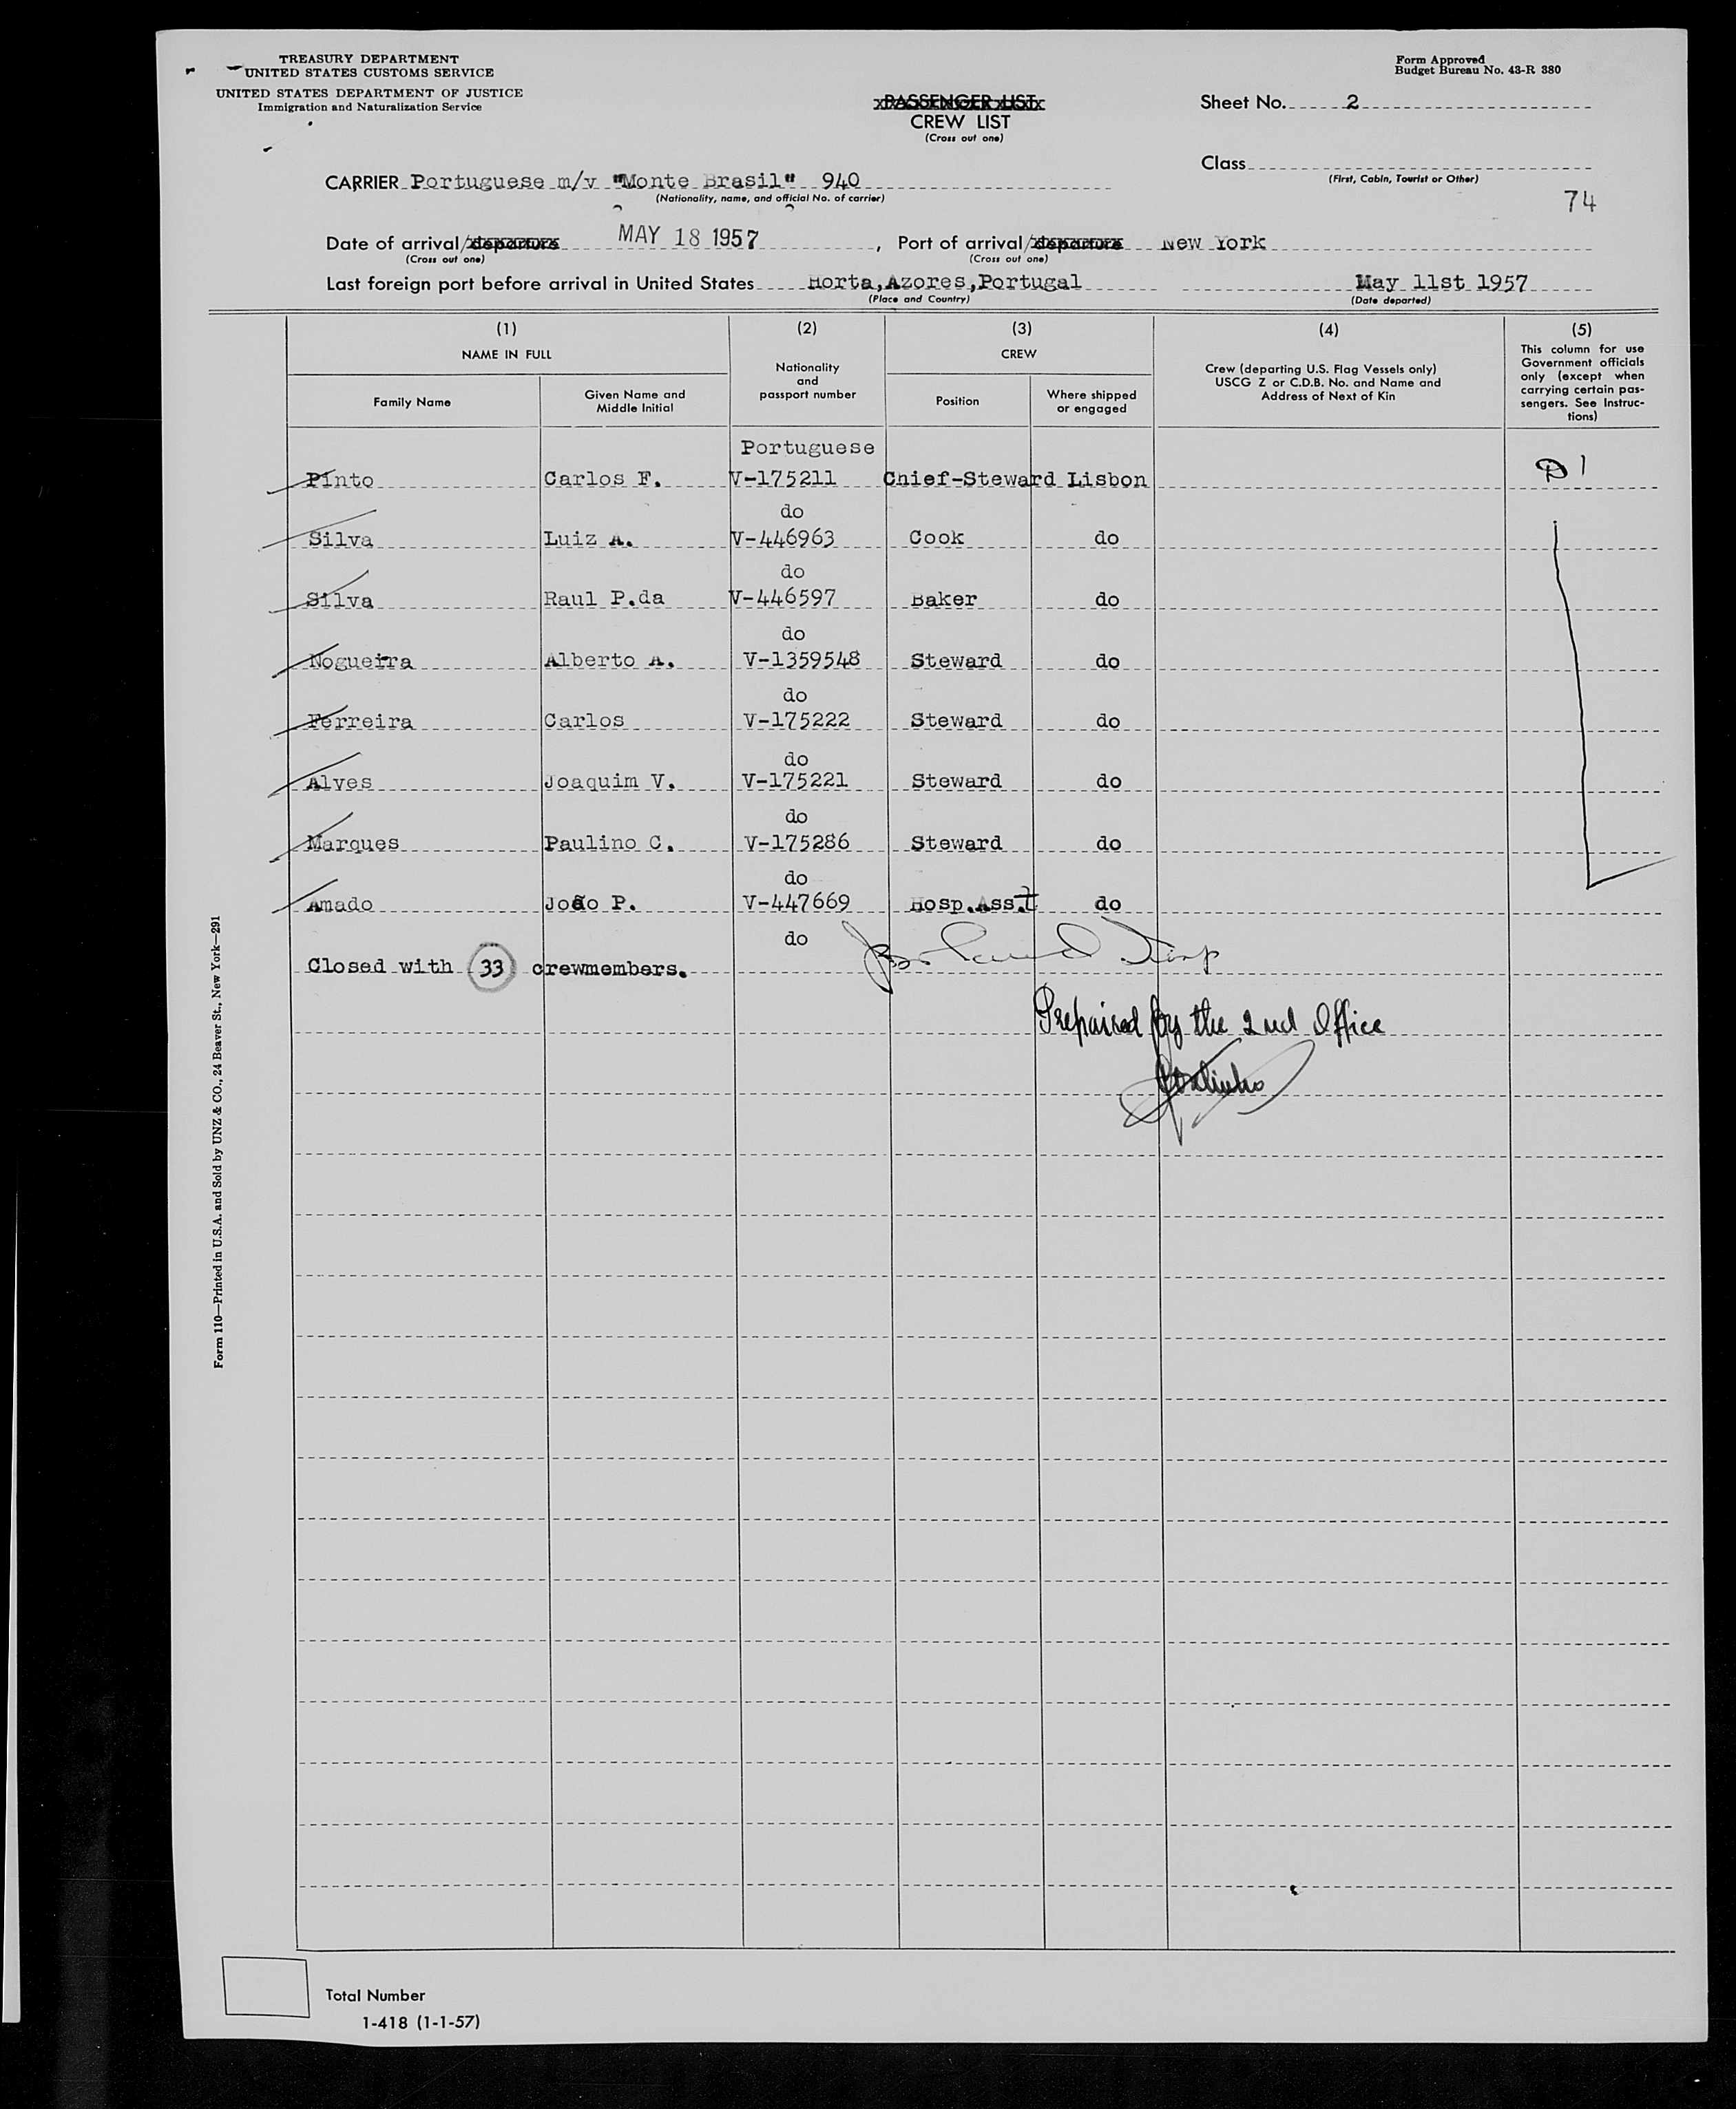 TREASURY DEPARTMENT
UNITED STATES CUSTOMS SERVICE
UNITED STATES DEPARTMENT OF JUSTICE
Immigration and Naturalization Service
Form Approved
Budget Bureau No. 43-R 380
PASSENGER LIST
CREW LIST
(Cross out one)
Sheet No. 2
Class
(First, Cabin, Tourist or Other)
74
CARRIER Portuguese m/v "Monte Brasil" 940
(Nationality, name, and official No. of carrier)
Date of arrival/departure MAY 18 1957, Port of arrival/departure New York
(Cross out one) (Cross out one)
Last foreign port before arrival in United States Horta,Azores,Portugal May 11st 1957
(Place and Country) (Date departed)
(1) (2) (3) (4) (5)
NAME IN FULL
Family Name
Given Name and
Middle Initial
Nationality
and
passport number
CREW
Position
Where shipped
or engaged
Crew (departing U.S. Flag Vessels only)
USCG Z or C.D.B. No. and Name and
Address of Next of Kin
This column for use
Government officials
only (except when
carrying certain pas-
sengers. See Instruc-
tions)
Portuguese
Pinto Carlos F. V-175211 Chief-Steward Lisbon D 1
do
Silva Luiz A. V-446963 Cook do
do
Silva Raul P.da V-446597 Baker do
do
Nogueira Alberto A. V-1359548 Steward do
do
Ferreira Carlos V-175222 Steward do
do
Alves Joaquim V. V-175221 Steward do
do
Marques Paulino C. V-175286 Steward do
do
Amado João P. V-447669 Hosp.Ass.t do
do
Closed with 33 crewmembers.
Prepaired by the 2nd Office
Form 110—Printed in U.S.A. and Sold by UNZ & CO., 24 Beaver St., New York—291
Total Number
1-418 (1-1-57)